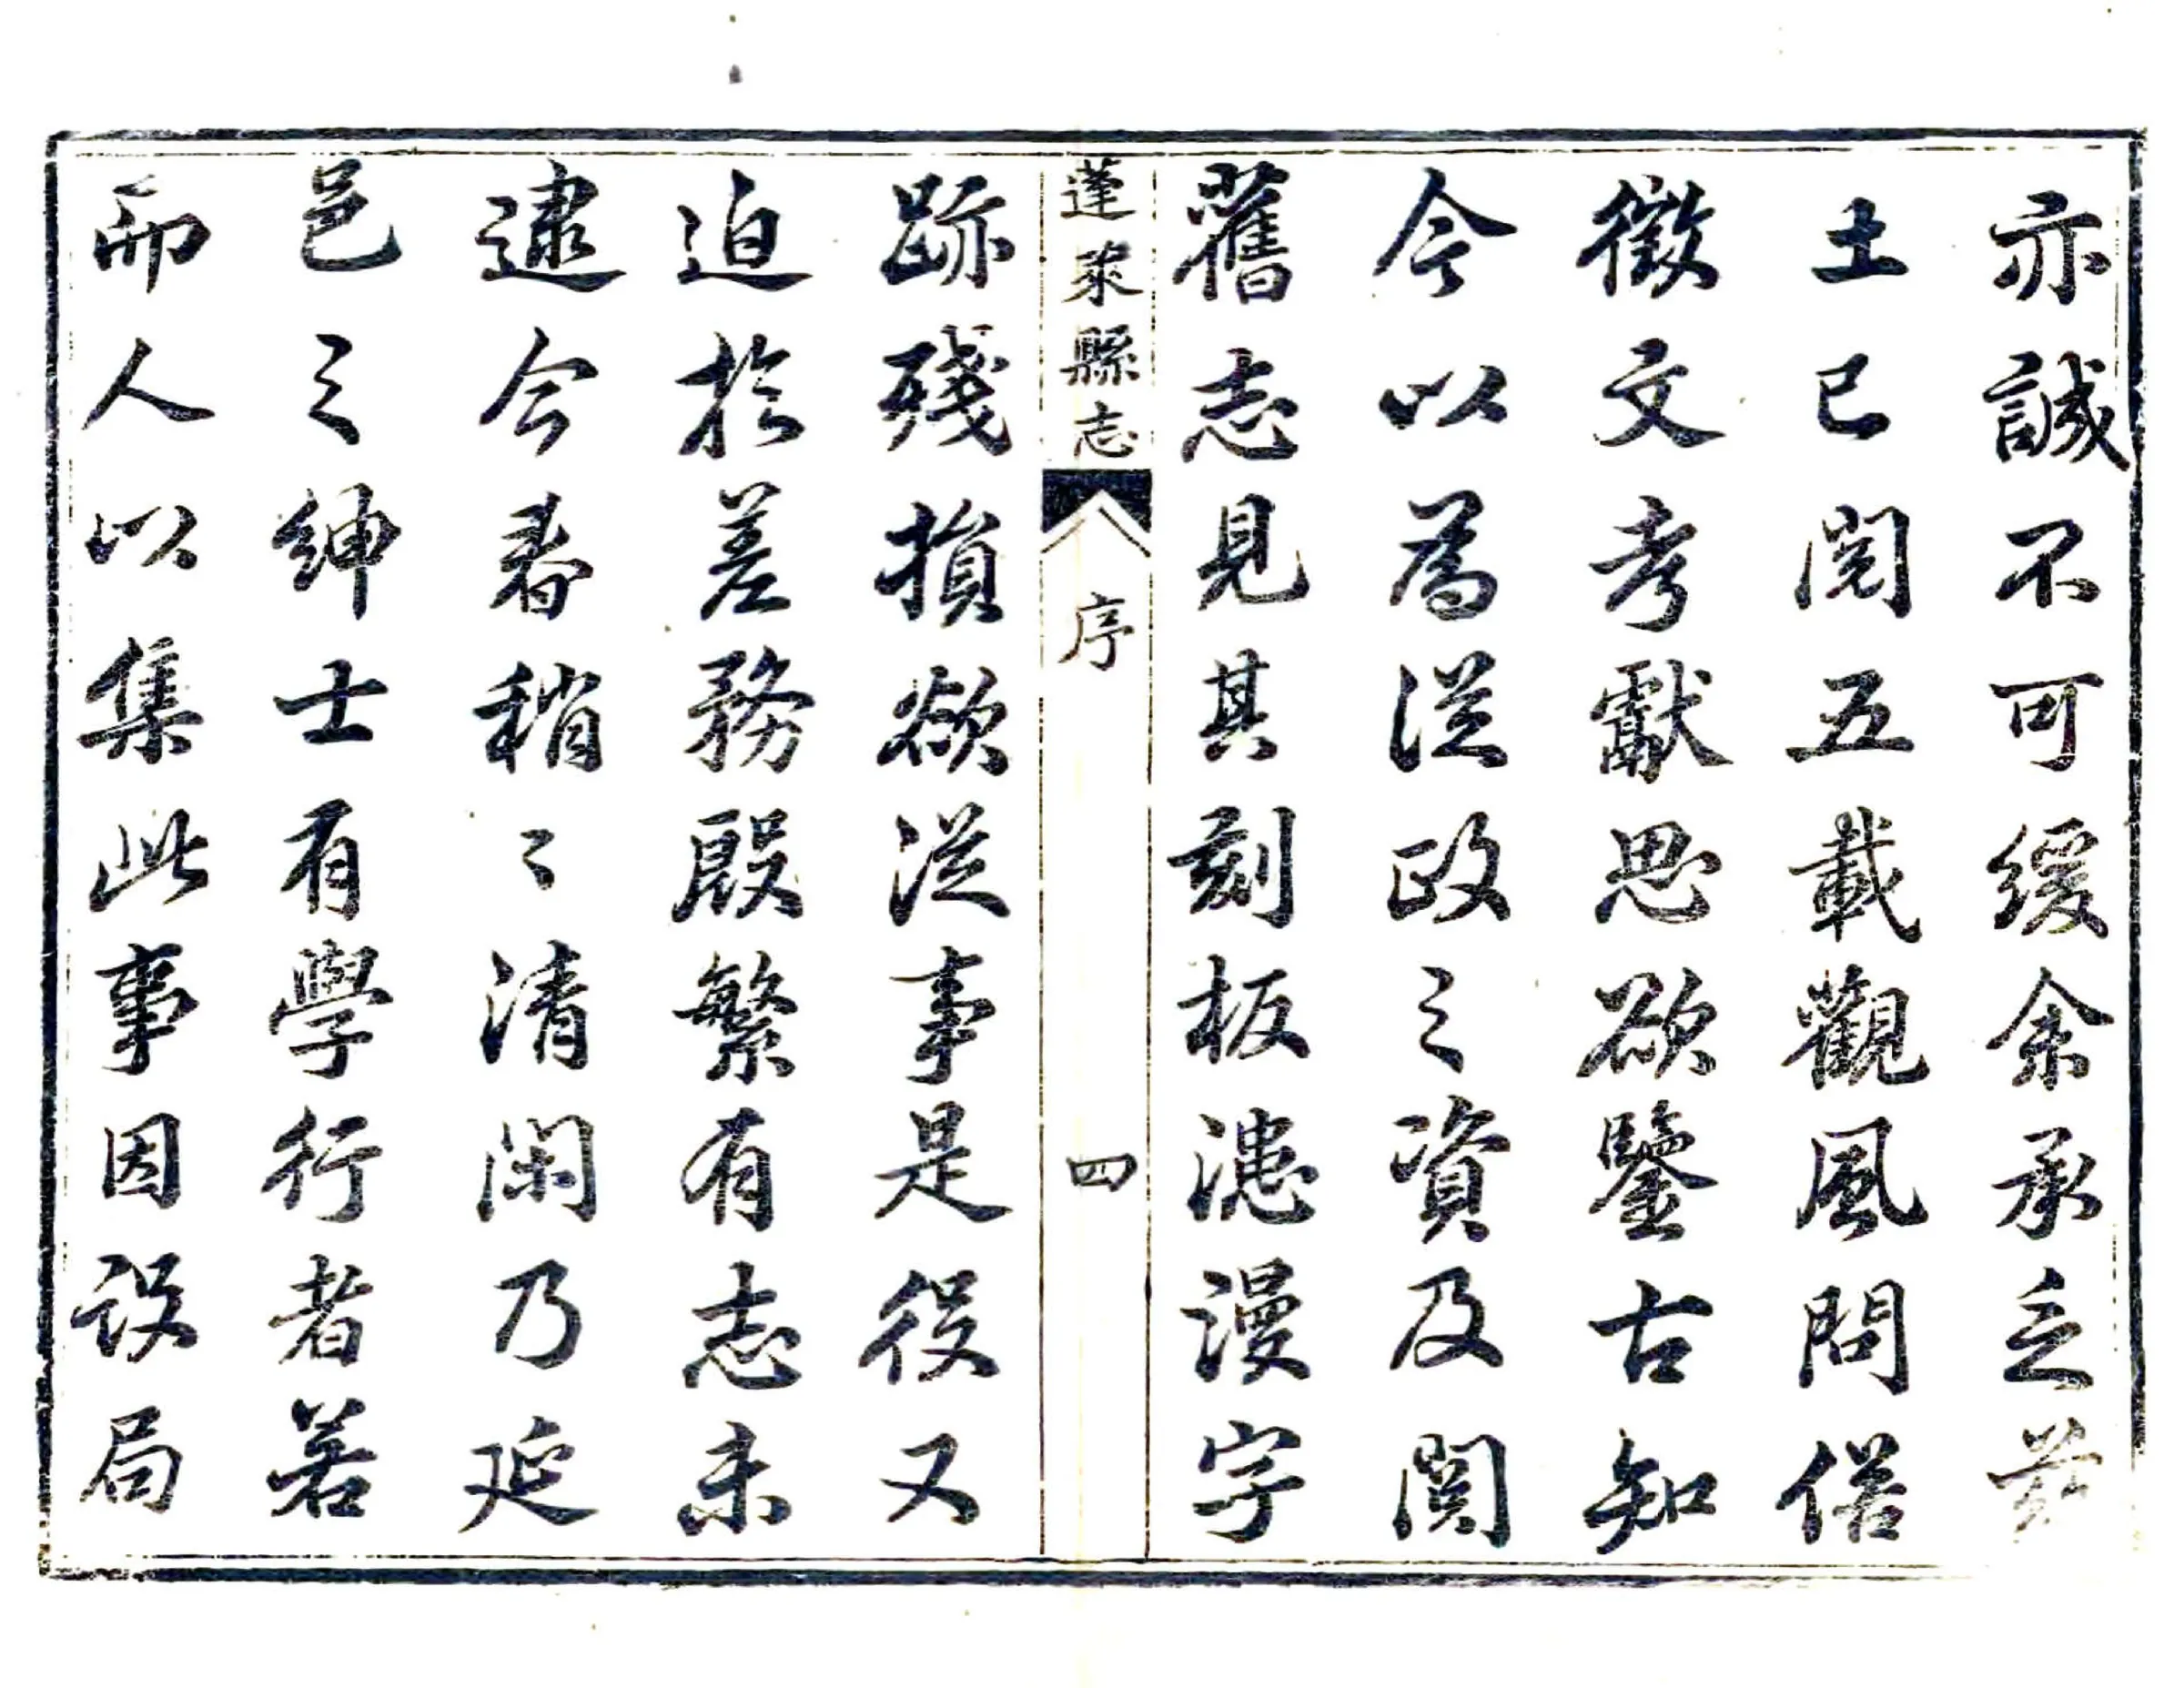 亦誠不可緩余承乏茲
土已閱五載觀風問俗
徵文考獻思欲鑒古知
今以為從政之資及閱
舊志見其刻板漶漫字
蓬萊縣志
序
四
跡殘損欲從事是役又
迫於差務殷繁有志未
逮今春稍〻清閑乃延
邑之紳士有學行者若
而人以集此事因設局